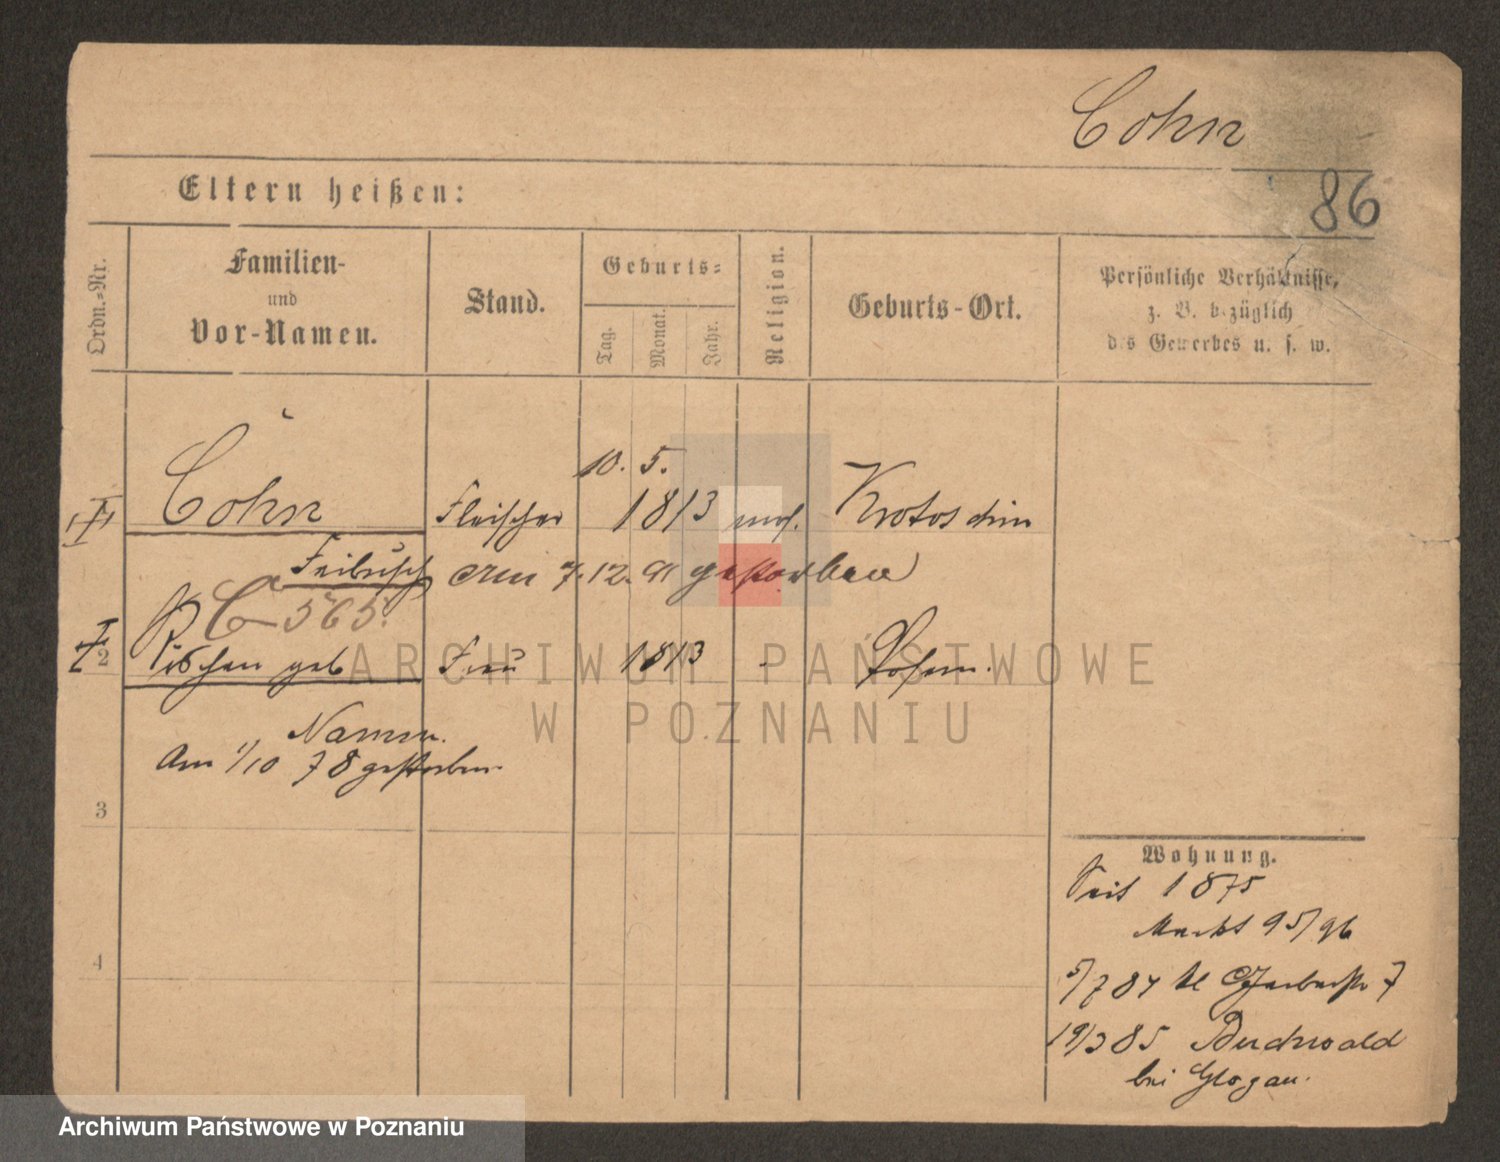 Cohn
86
Eltern heißen:
Ordn.-Nr.
Familien-
und
Vor-Namen.
Stand.
Geburts-
Tag.
Monat.
Jahr.
Religion.
Geburts-Ort.
Persönliche Verhältnisse,
z. B. bezüglich
des Gewerbes u. s. w.
10. 5.
Cohn Fleischer 1813 mos. Krotoschin
Feibusch am 7.12.91 gestorben
C 565.
2 geb Frau 1813 Posen.
Namen.
Am 1/10 78 gestorben
3
4
Wohnung.
Seit 1875
Markt 95/96
5/7 84 kl Gerberstr 7
19/3 85 Buchwald
bei Glogau.
ARCHIWUM PAŃSTWOWE
W POZNANIU
Archiwum Państwowe w Poznaniu